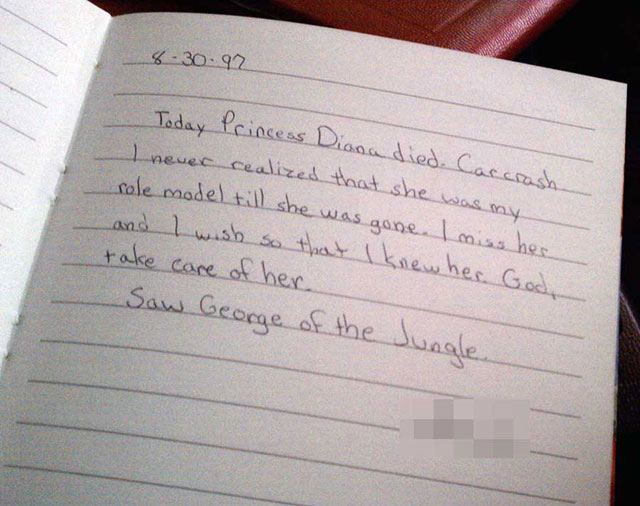 8-30-97
Today Princess Diana died. Car crash
I never realized that she was my
role model till she was gone. I miss her
and I wish so that I knew her. God,
take care of her.
Saw George of the Jungle.